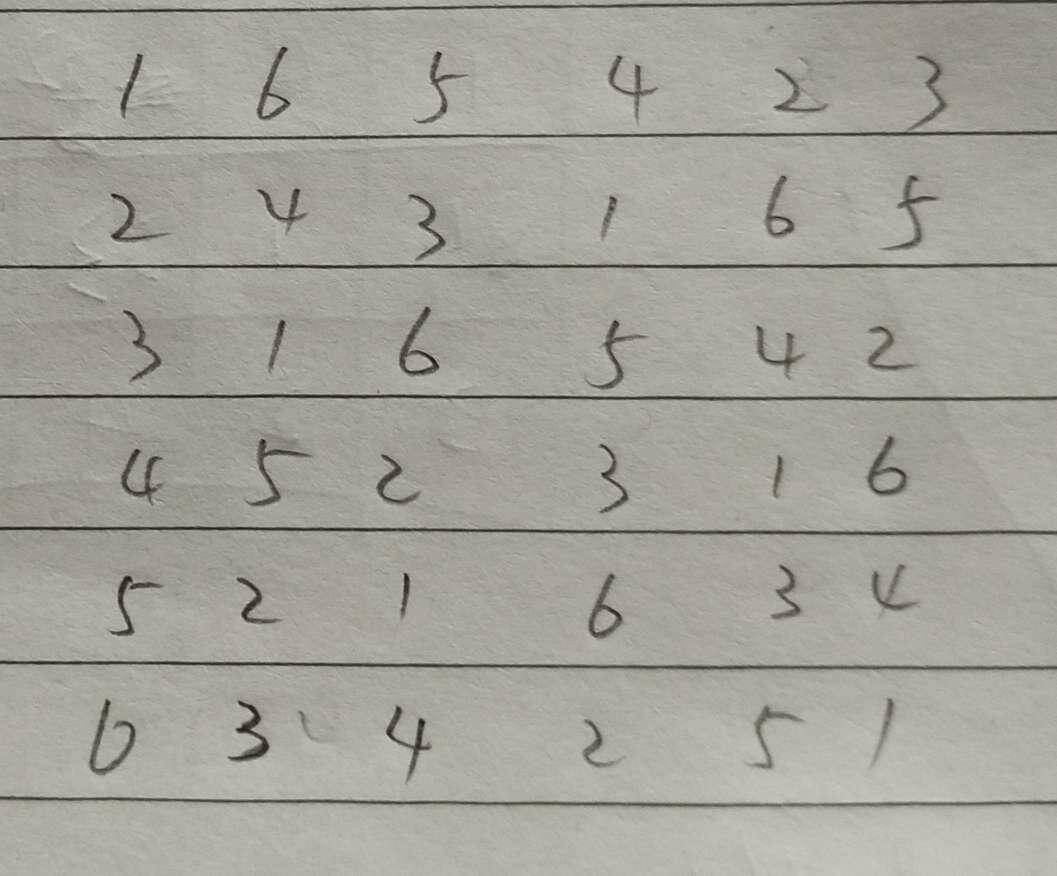 1 6 5 4 2 3
2 4 3 1 6 5
3 1 6 5 4 2
4 5 2 3 1 6
5 2 1 6 3 4
6 3 4 2 5 1